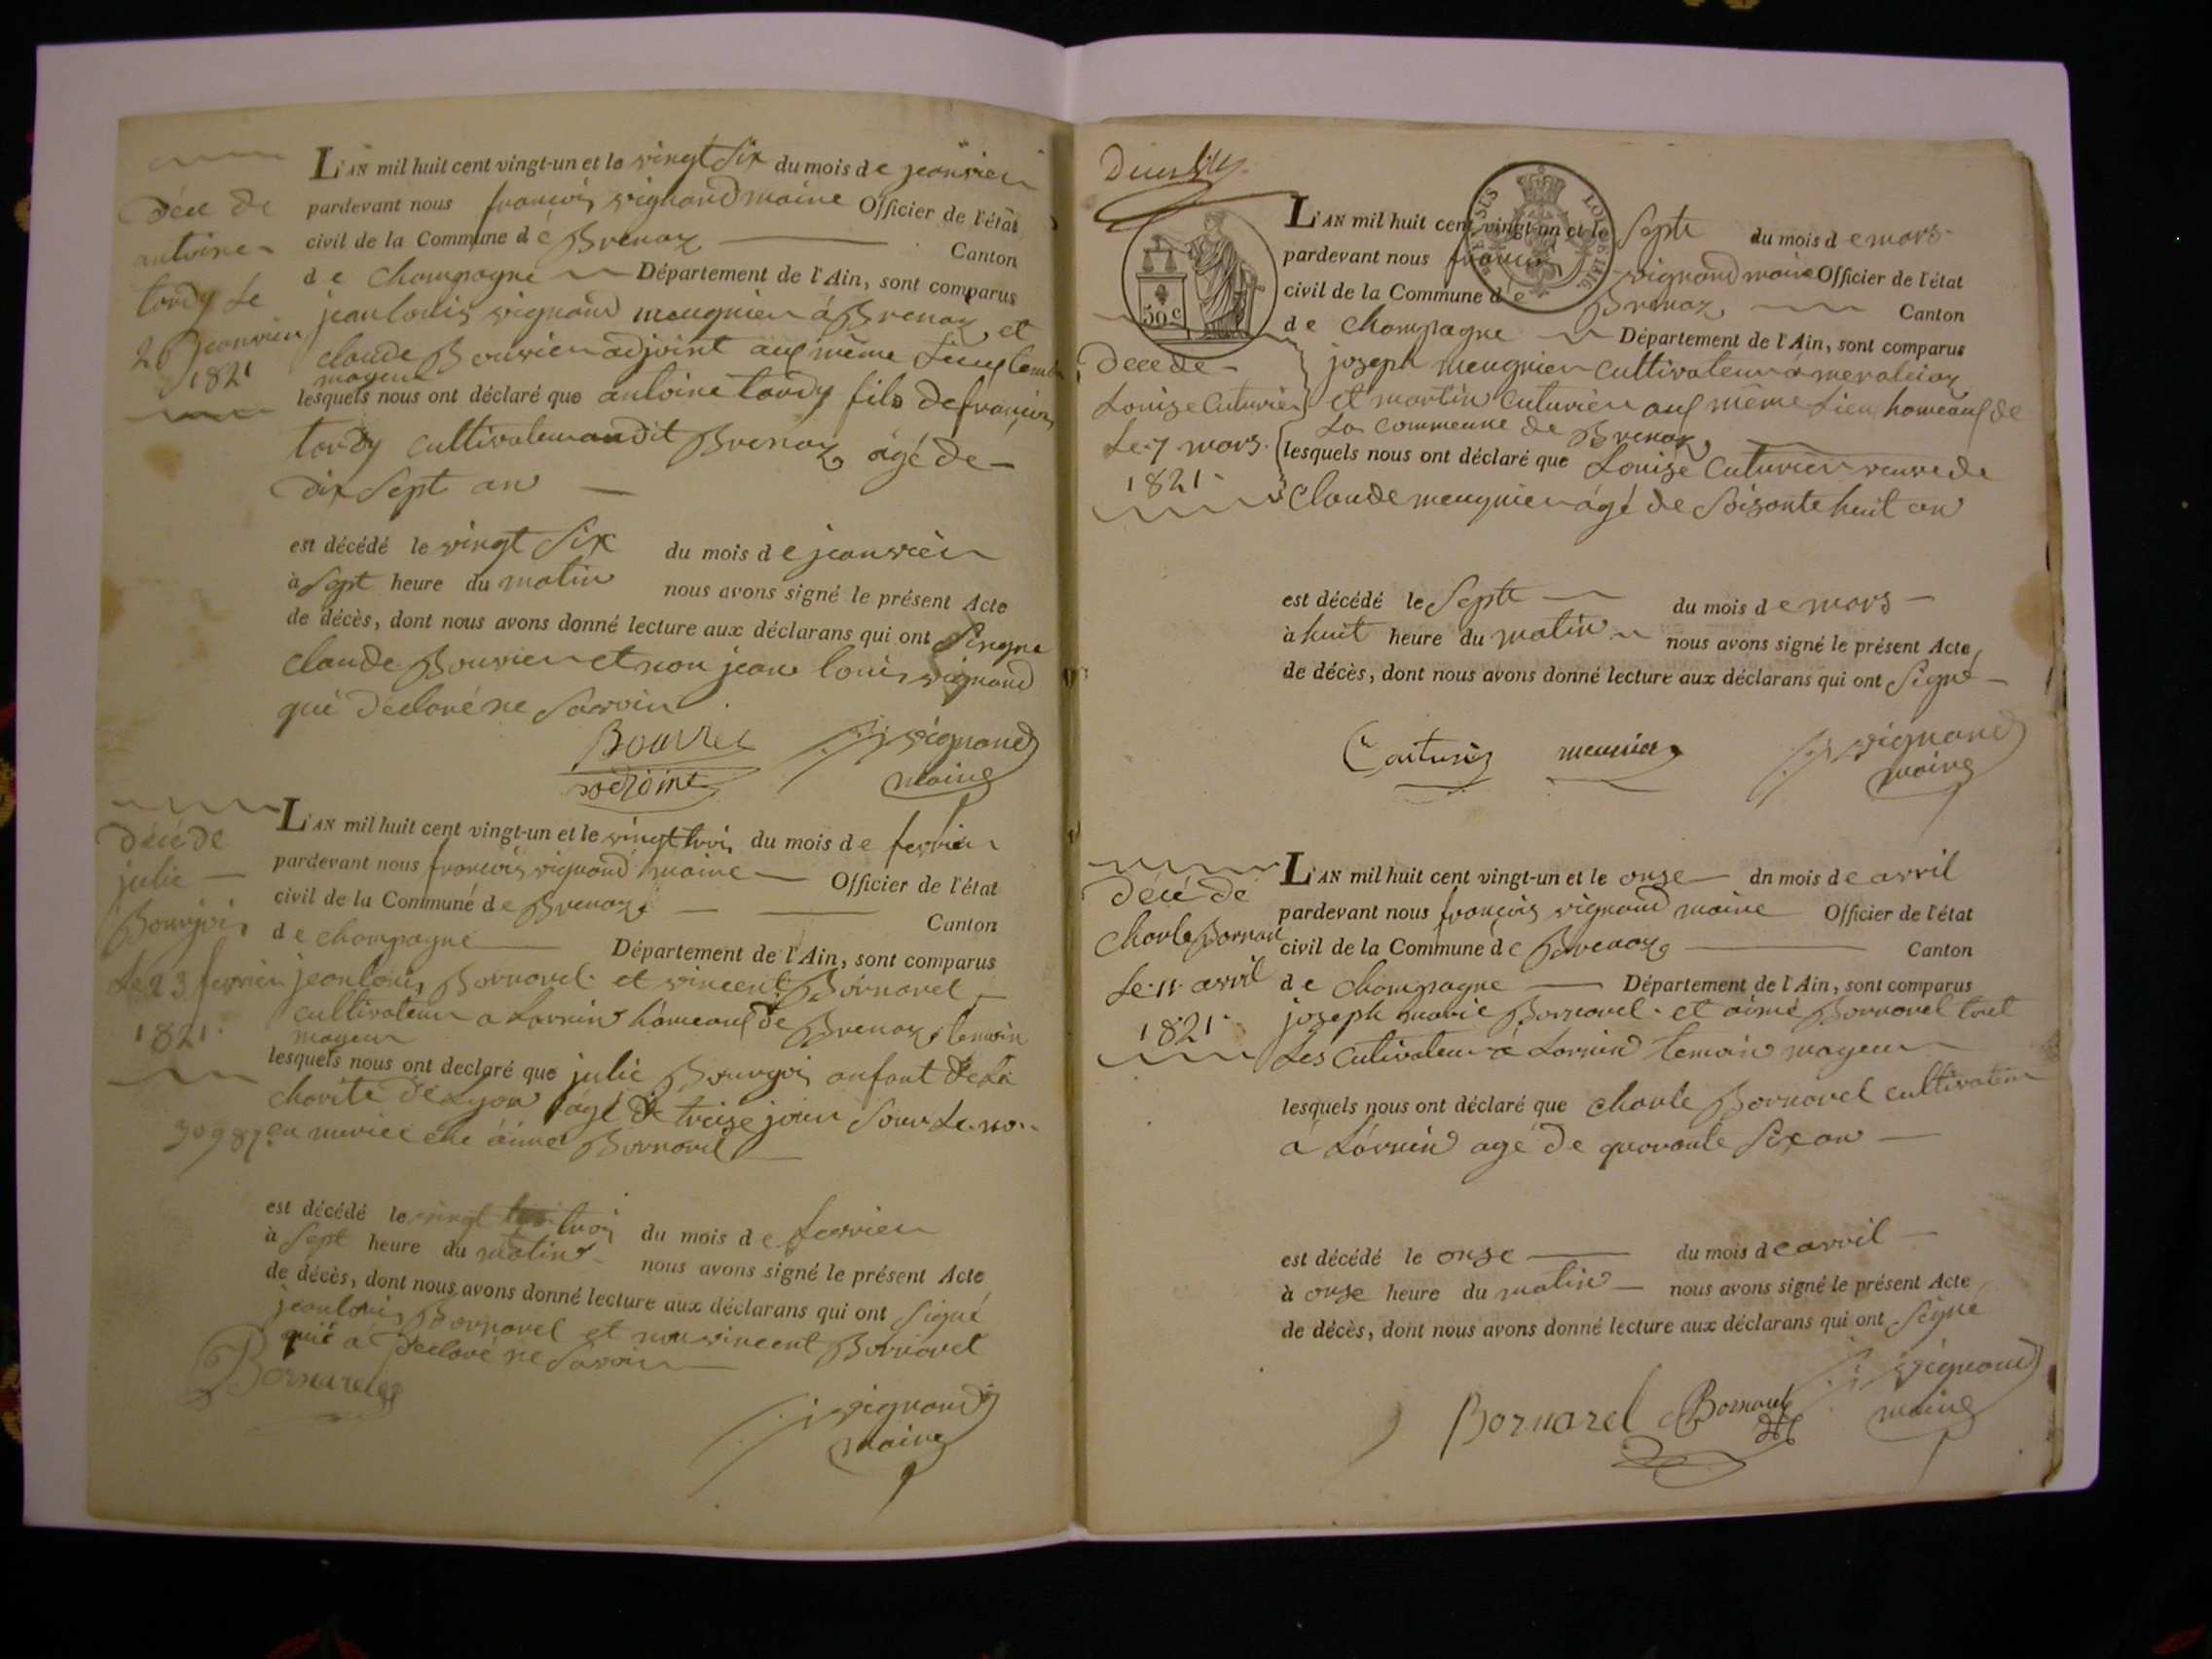 Décé de
antoine
tardy Le
26 janvier
1821
L'AN mil huit cent vingt-un et le vingt Six du mois de janvier
pardevant nous françois vignand maire Officier de l'état
civil de la Commune de Brenaz Canton
de Champagne Département de l'Ain, sont comparus
jean louis vignand meugnier á Brenaz, et
claude Bouvier adjoint aux même Lieux
mageur
lesquels nous ont déclaré que antoine tardy fils de françois
tardy cultivateur audit Brenaz âgé de
dix Sept an
est décédé le vingt Six du mois de janvier
à Sept heure du matin nous avons signé le présent Acte
de décès, dont nous avons donné lecture aux déclarans qui ont Singne
claude Bouvier et non jean louis vignand
qui déclaré ne Savoir
Bouvier
adjoint
vignand
maire
Décé de
julie
Bourjois
Le 23 fevrier
1821
L'AN mil huit cent vingt-un et le vingt trois du mois de fevrier
pardevant nous françois vignand maire Officier de l'état
civil de la Commune de Brenaz Canton
de Champagne Département de l'Ain, sont comparus
jean louis Bornarel et vincent Bornarel
cultivateur a Lornin hameaux de Brenaz, temoin
mageur
lesquels nous ont declaré que julie Bourgois anfant de La
charité de Lyon âgé de treise jour Sour Le no
30987 en nurice ché aimé Bornarel
est décédé le vingt trois du mois de fevrier
à Sept heure du matin nous avons signé le présent Acte
de décès, dont nous avons donné lecture aux déclarans qui ont Signé
jean louis Bornarel et non vincent Bornarel
qui a declaré ne Savoir
Bornarel
vignand
maire
50 c
LOI DE 1816.
L'AN mil huit cent vingt-un et le Septe du mois de mars
pardevant nous françois vignand maire Officier de l'état
civil de la Commune de Brenaz Canton
de Champagne Département de l'Ain, sont comparus
Decé de
Louise Cuturier
Le 7 mars
1821
joseph meugnier cultivateur á meraleaz
et martin Cuturier aux même Lieu, hameaux de
La commeune de Brenaz
lesquels nous ont déclaré que Louise Cuturier veuve de
Claude meugnier âgé de Soisante huit an
est décédé le Septe du mois de mars
à huit heure du matin nous avons signé le présent Acte,
de décès, dont nous avons donné lecture aux déclarans qui ont Signé
meunier
vignand
maire
Décé de
Charle Bornarel
Le 11 avril
1821
L'AN mil huit cent vingt-un et le onse dn mois de avril
pardevant nous françois vignand maire Officier de l'état
civil de la Commune de Brenaz Canton
de Champagne Département de l'Ain, sont comparus
joseph marie Bornarel et aimé Bornarel tout
Les Cutivateur á Lornin temoin mageur
lesquels nous ont déclaré que Charle Bornarel cultivateur
á Lornin agé de quaronte Six an
est décédé le onse du mois de avril
à onse heure du matin nous avons signé le présent Acte
de décès, dont nous avons donné lecture aux déclarans qui ont Signé
Bornarel Bornarel
vignand
maire